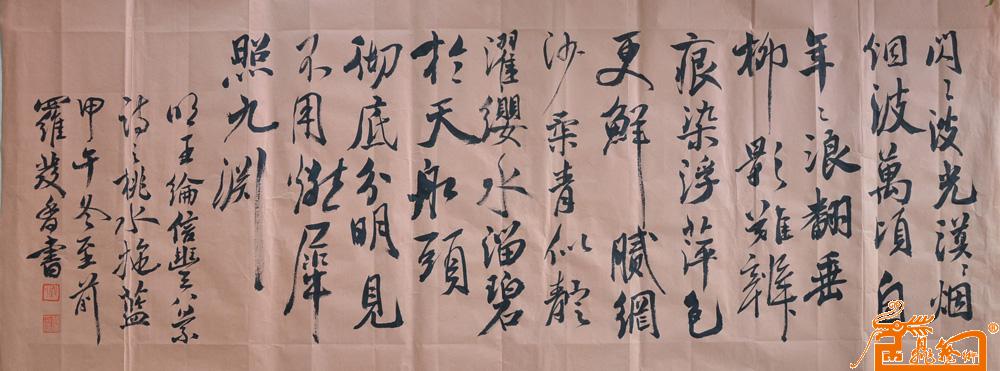 閃〻波光漠〻烟
波萬頃自
年〻浪翻垂
柳影難辨
痕染浮萍色
更鮮膩網
沙棠青似靛
濯纓水溜碧
於天船頭
彻底分明見
不用燃犀
照九淵
明王綸信豐八景
詩之桃水拖藍
甲午冬至前
羅發香書